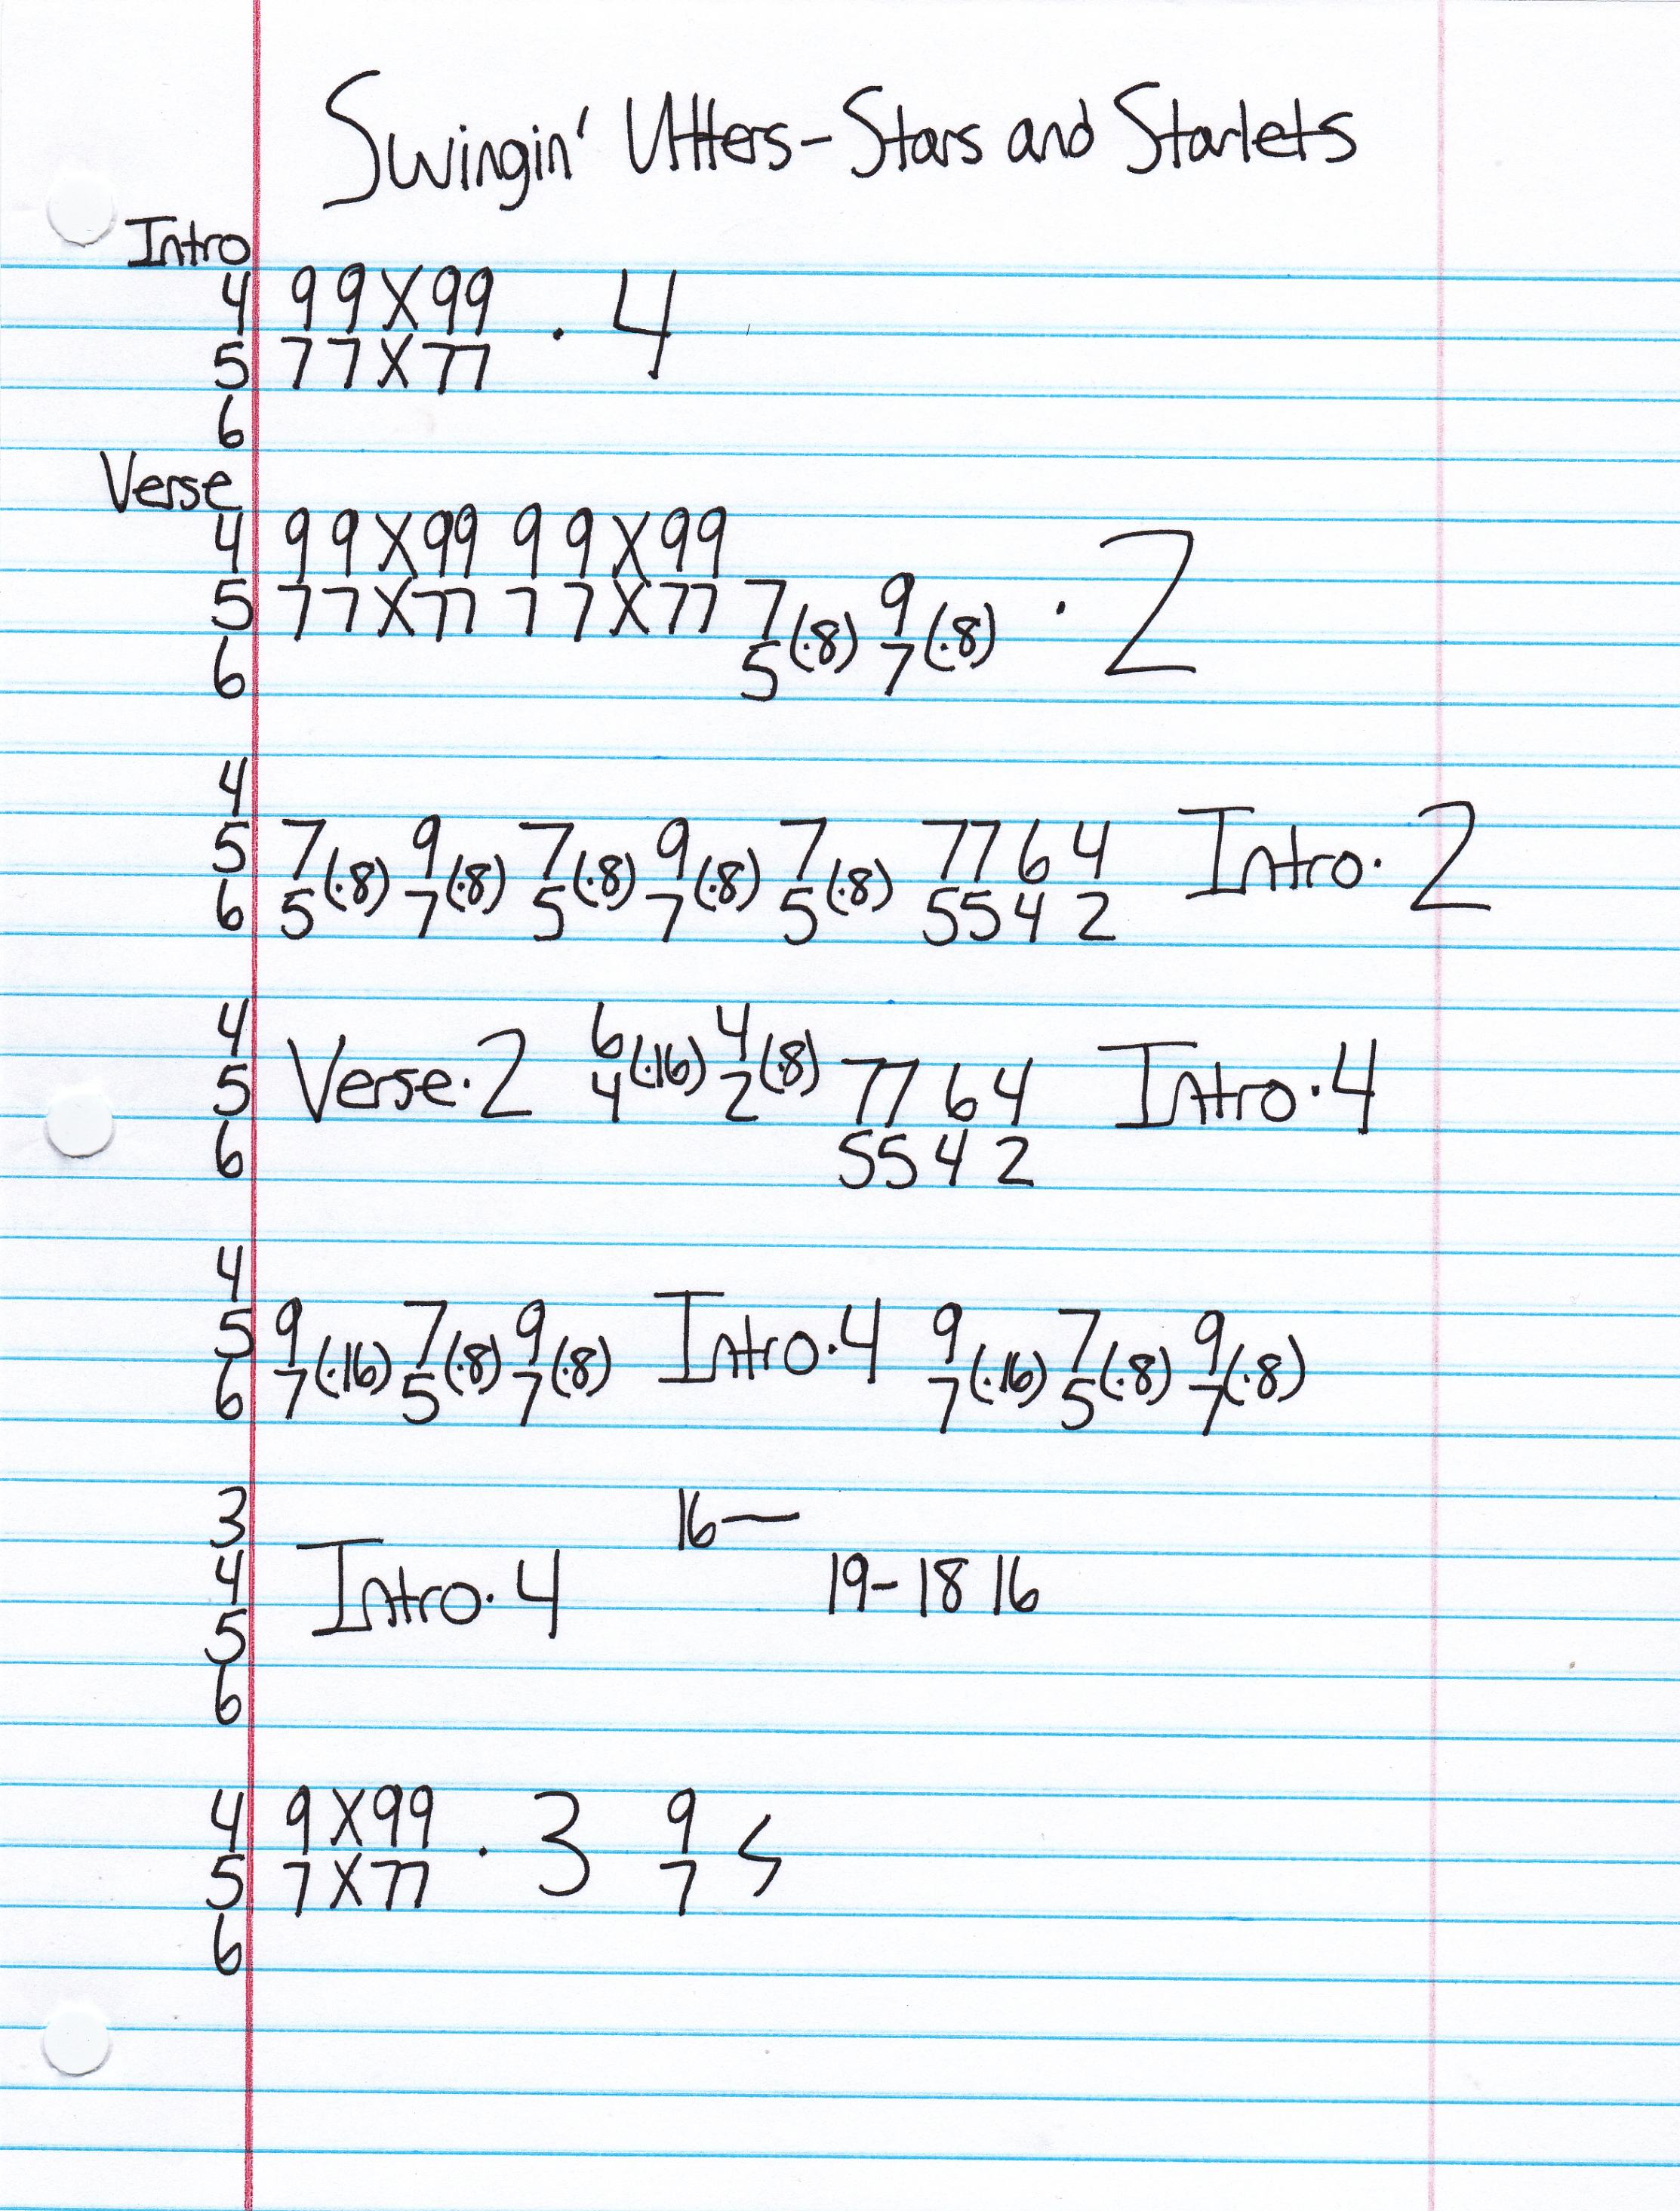 Swingin' Utters - Stars and Starlets
Intro
4 99X99 · 4
5 77X77
6
Verse
4 99X99 99X99
5 77X77 77X77 7(·8) 9(·8) · 2
6 5 7
4
5 7(·8) 9(·8) 7(·8) 9(·8) 7(·8) 77 6 4 Intro · 2
6 5 7 5 7 5 55 4 2
4 6(·16) 4(·8)
5 Verse · 2 4 2 77 6 4 Intro · 4
6 55 4 2
4
5 9(·16) 7(·8) 9(·8) Intro · 4 9(·16) 7(·8) 9(·8)
6 7 5 7 7 5 7
3 16—
4 Intro · 4 19-18 16
5
6
4 9X99 · 3 9
5 7X77 7
6